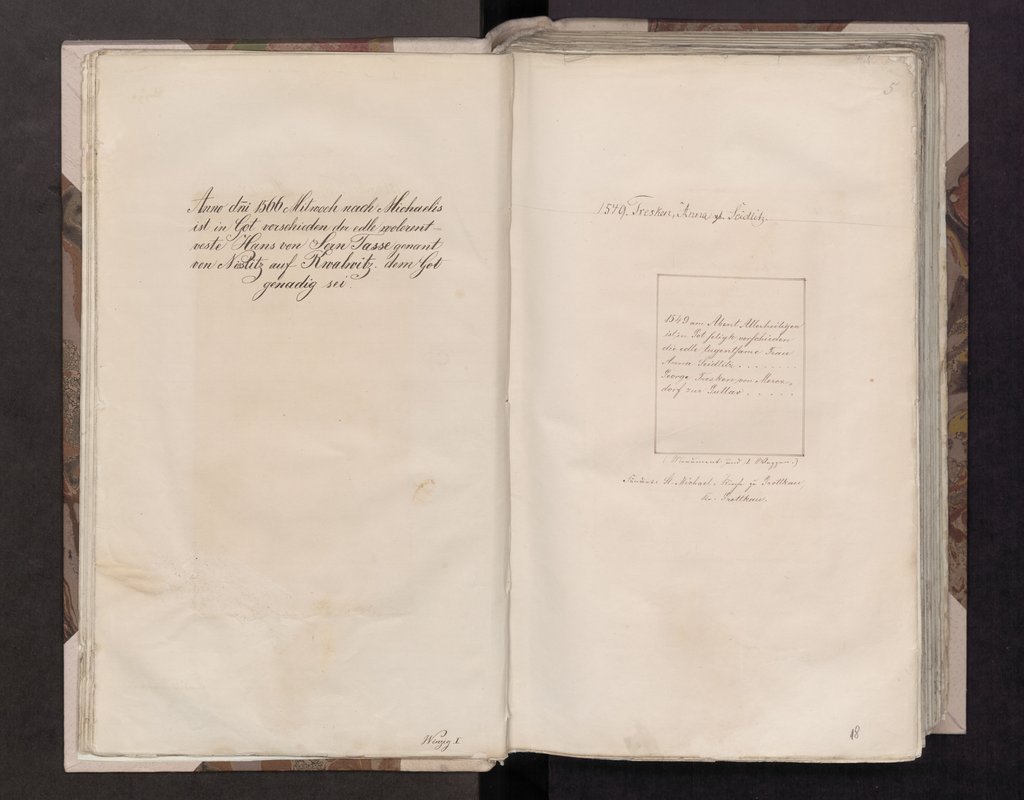 Anno dni 1566 Mitwoch nach Michaelis
ist in Got vorschieden der edle wolerent-
veste Hans von Tasse genant
von Nostitz auf Kwalwitz. dem Got
genadig sei.
Winzig. I
5
1549. Tresken, Anna Seidlitz.
1549 am Abent Allerheiligen
ist in Got seligk verschieden
die edle tugentsame Frau
Anna Seidlitz . . . . . . . .
George Tresken von Merz-
dorf zur . . . . .
(Monument und 1 Wappen.)
St. Michael-Kirche zu Grottkau,
Kr. Grottkau.
18